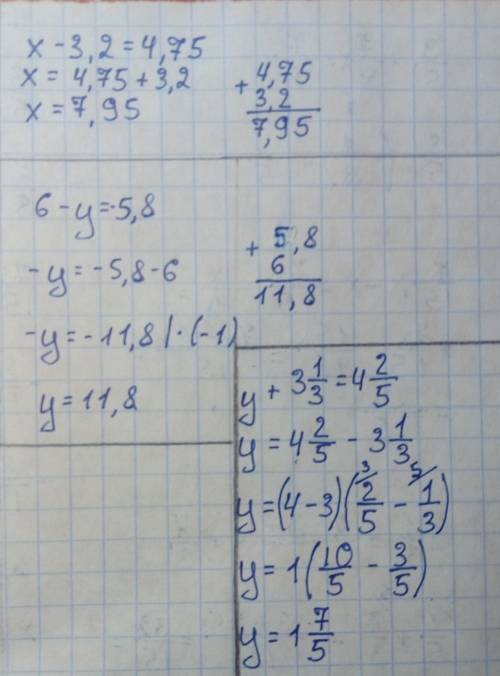 x - 3,2 = 4,75
x = 4,75 + 3,2
x = 7,95
+ 4,75
3,2
7,95
6 - y = -5,8
-y = -5,8 - 6
-y = -11,8 | · (-1)
y = 11,8
+ 5,8
6
11,8
y + 3 1/3 = 4 2/5
y = 4 2/5 - 3 1/3
y = (4 - 3) (3/ 2/5 - 5/ 1/3)
y = 1 (10/5 - 3/5)
y = 1 7/5